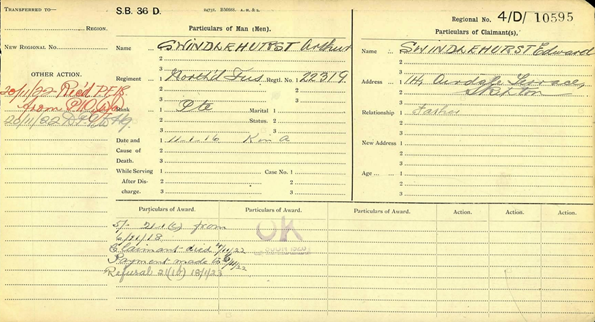 TRANSFERRED TO
REGION.
NEW REGIONAL No.
OTHER ACTION.
20/11/22 Rec'd P.E.B.
from
20/11/22
S.B. 36 D.
Particulars of Man (Men).
Name 1 SWINDLEHURST Arthur
2
3
Regiment 1 North'd Fus. Regtl. No. 22319
2
3
Rank 1 Pte Marital 1
2 Status. 2
3 3
Date and 1 11-1-16 K in A
Cause of 2
Death. 3
While Serving 1 Case No. 1
After Dis- 2 2
charge. 3 3
Regional No. 4/D/ 10595
Particulars of Claimant(s).
Name 1 SWINDLEHURST Edward
2
3
Address 1 114 Airedale Terrace,
2 Skipton
3
Relationship 1 Father
2
3
New Address 1
2
3
Age 1
2
3
Particulars of Award. Particulars of Award. Particulars of Award. Action. Action. Action.
5/- 21(b) from
6/11/18
Claimant died
Payment made to
Refusal 21(b) 18/1/23
OK